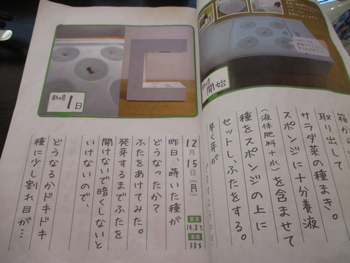 開始
箱から
取り出して
サラダ菜の種まき。
スポンジに十分養液
(液体肥料+水)を含ませて
種をスポンジの上に
セットし、ふたをする。
早く芽が
1日
12月15日(月)
昨日、蒔いた種が
どうなったか?
ふたをあけてみた。
発芽するまでふたを
開けないで暗くしないと
いけないので、
どうなるかドキドキ
種に少し割れ目が…